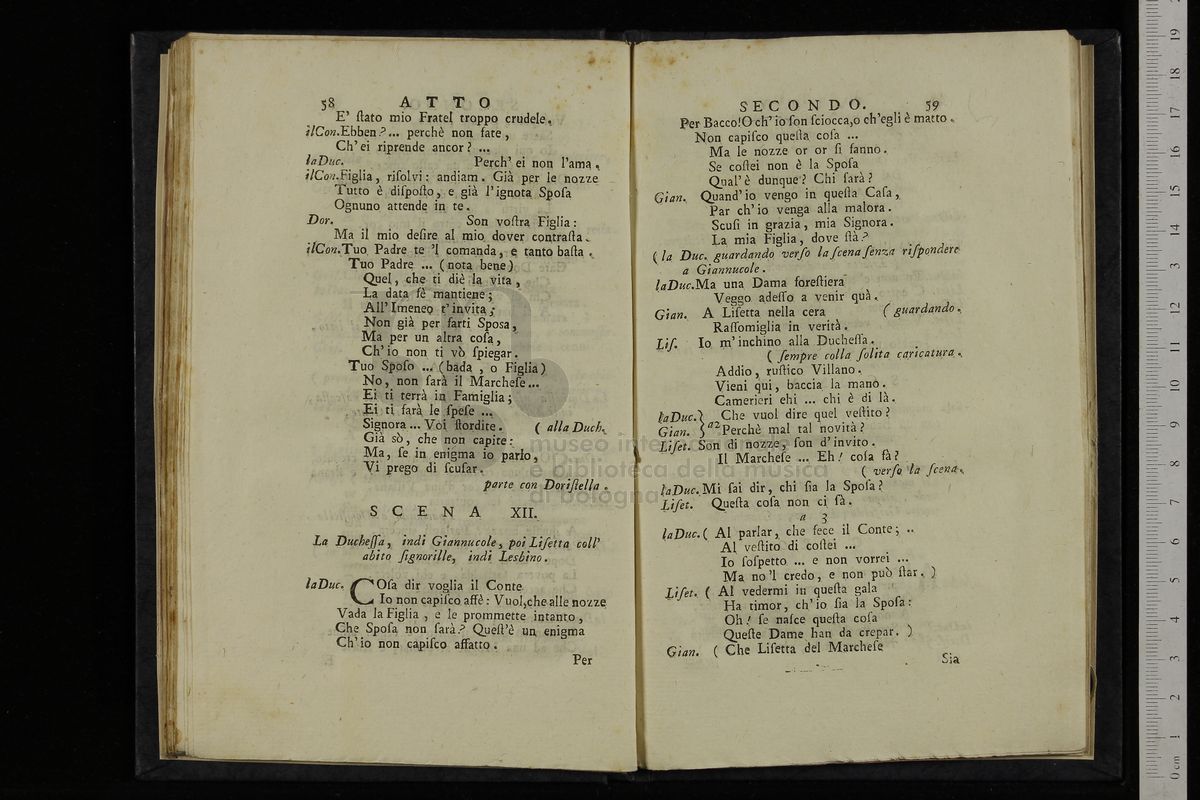 58 ATTO
E' ſtato mio Fratel troppo crudele.
ilCon.Ebben?... perchè non fate,
Ch' ei riprende ancor? ...
laDuc. Perch' ei non l'ama.
ilCon.Figlia, riſolvi: andiam. Già per le nozze
Tutto è diſpoſto, e già l'ignota Spoſa
Ognuno attende in te.
Dor. Son voſtra Figlia:
Ma il mio deſire al mio dover contraſta.
ilCon.Tuo Padre te 'l comanda, e tanto baſta.
Tuo Padre ... (nota bene)
Quel, che ti diè la vita,
La data fè mantiene;
All' Imeneo t'invita;
Non già per farti Spoſa,
Ma per un altra coſa,
Ch' io non ti vò ſpiegar.
Tuo Spoſo ... (bada, o Figlia)
No, non ſarà il Marcheſe...
Ei ti terrà in Famiglia;
Ei ti farà le ſpeſe ...
Signora ... Voi ſtordite. ( alla Duch.
Già sò, che non capite:
Ma, ſe in enigma io parlo,
Vi prego di ſcuſar.
parte con Doriſtella.
SCENA XII.
La Ducheſſa, indi Giannucole, poi Liſetta coll'
abito ſignorille, indi Lesbino.
laDuc. COſa dir voglia il Conte
Io non capiſco affè: Vuol,che alle nozze
Vada la Figlia, e le prommette intanto,
Che Spoſa non ſarà? Queſt'è un enigma
Ch' io non capiſco affatto.
Per
SECONDO. 59
Per Bacco!O ch' io ſon ſciocca,o ch'egli è matto.
Non capiſco queſta coſa ...
Ma le nozze or or ſi fanno.
Se coſtei non è la Spoſa
Qual' è dunque? Chi ſarà?
Gian. Quand' io vengo in queſta Caſa,
Par ch' io venga alla malora.
Scuſi in grazia, mia Signora.
La mia Figlia, dove ſtà?
( la Duc. guardando verſo la ſcena ſenza riſpondere
a Giannucole.
laDuc.Ma una Dama foreſtiera
Veggo adeſſo a venir quà.
Gian. A Liſetta nella cera ( guardando.
Raſſomiglia in verità.
Liſ. Io m'inchino alla Ducheſſa.
( ſempre colla ſolita caricatura.
Addio, ruſtico Villano.
Vieni qui, baccia la mano.
Camerieri ehi ... chi è di là.
laDuc.} Che vuol dire quel veſtito?
Gian. } a2 Perchè mal tal novità?
Liſet. Son di nozze, ſon d'invito.
Il Marcheſe ... Eh! coſa fà?
( verſo la ſcena.
laDuc.Mi ſai dir, chi ſia la Spoſa?
Liſet. Queſta coſa non ci ſa.
a 3
laDuc.( Al parlar, che fece il Conte; ..
Al veſtito di coſtei ...
Io ſoſpetto ... e non vorrei ...
Ma no 'l credo, e non può ſtar. )
Liſet. ( Al vedermi in queſta gala
Ha timor, ch' io ſia la Spoſa:
Oh! ſe naſce queſta coſa
Queſte Dame han da crepar. )
Gian. ( Che Liſetta del Marcheſe
Sia
museo internazionale
e biblioteca della musica
di bologna
0 cm 1 2 3 4 5 6 7 8 9 10 11 12 13 14 15 16 17 18 19